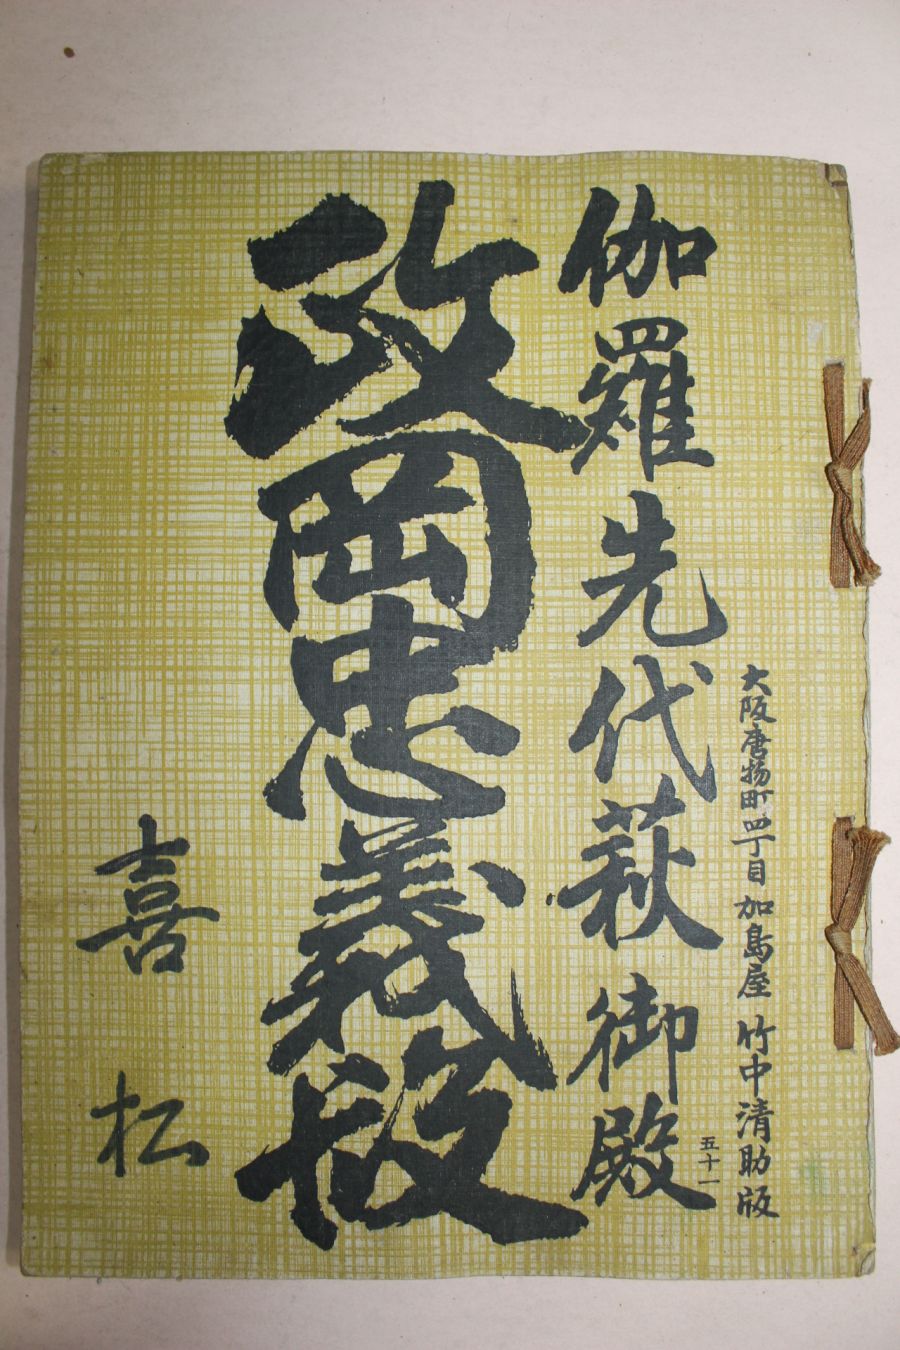 大阪唐物町四丁目 加島屋 竹中清助版
伽羅先代萩御殿
五十一
政岡忠義段
喜松